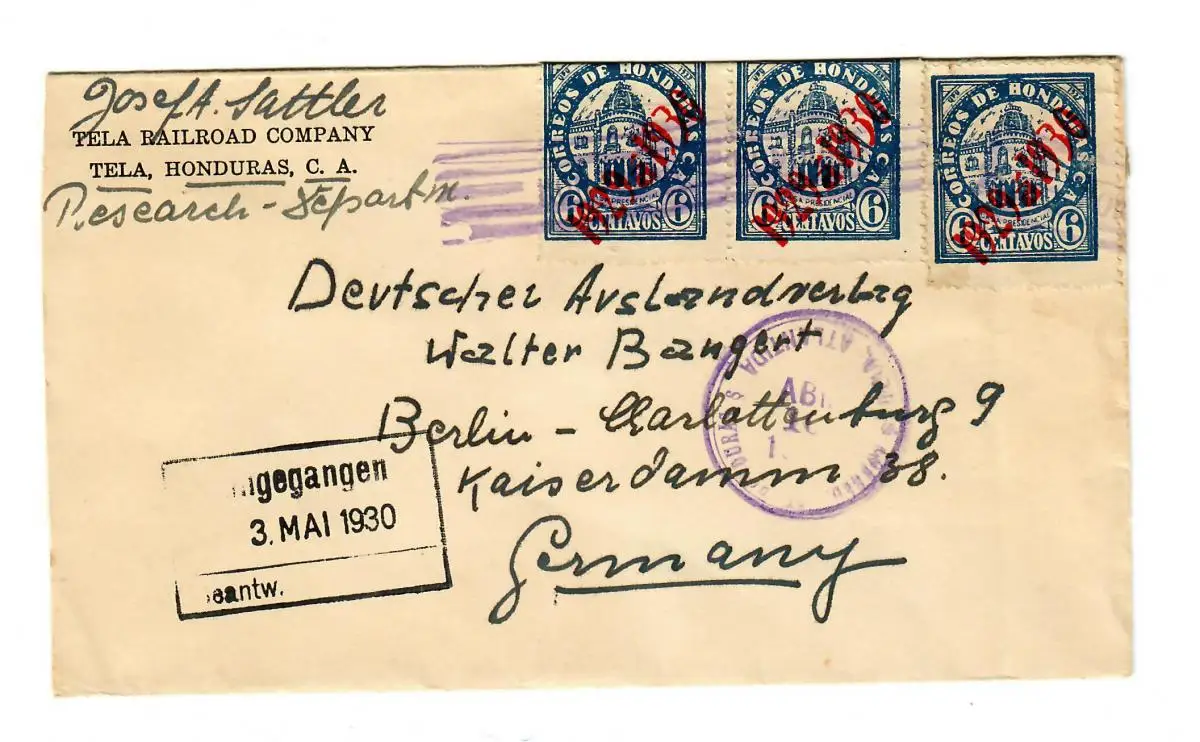 Josef A. Sattler
TELA RAILROAD COMPANY
TELA, HONDURAS, C. A.
Research-Departm.
CORREOS DE HONDURAS C.A.
PRESIDENCIAL
6 CENTAVOS 6
1929 a 1930
CORREOS DE HONDURAS C.A.
PRESIDENCIAL
6 CENTAVOS 6
1929 a 1930
CORREOS DE HONDURAS C.A.
PRESIDENCIAL
6 CENTAVOS 6
1929 a 1930
Deutscher Auslandverlag
Walter Bangert
Berlin - Charlottenburg 9
Kaiserdamm 38.
Germany
ATLANTIDA
AB
ngegangen
3. MAI 1930
eantw.